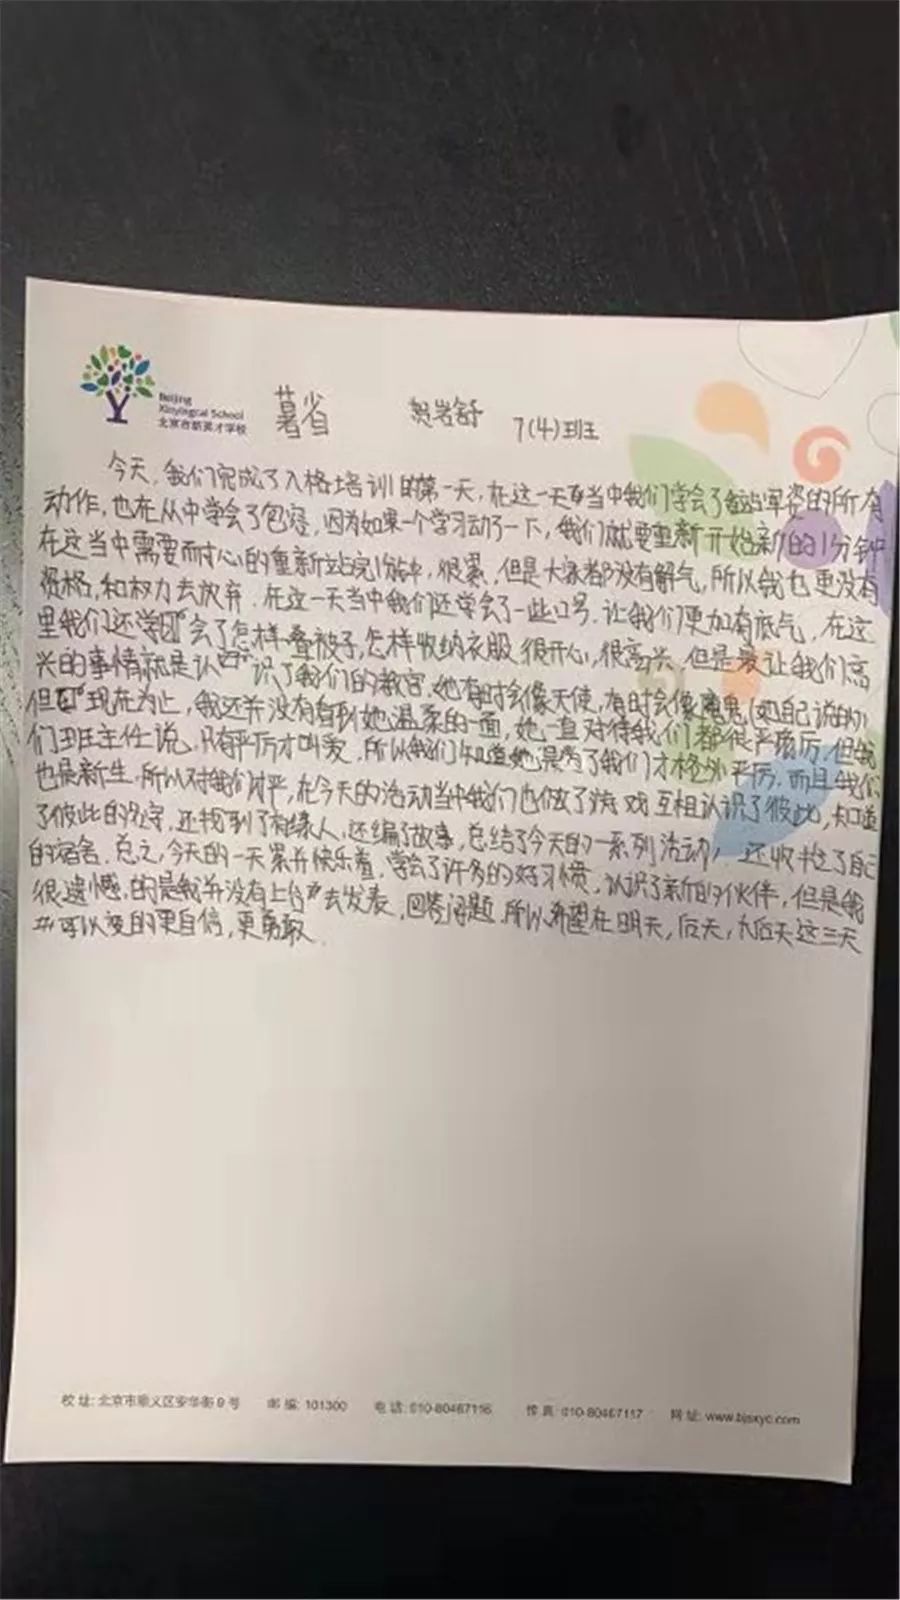 Beijing
Xinyingcai School
北京市新英才学校
暮省 贺岩舒 7(4)班
今天,我们完成了入格培训的第一天,在这一天当中我们学会了站军姿的所有
动作,也在从中学会了包容,因为如果一个学习动了一下,我们就要重新开始新的1分钟
在这当中需要耐心的重新站完1分钟,很累,但是大家都没有解气,所以我也更没有
资格,和权力去放弃.在这一天当中我们还学会了一些口号.让我们更加有底气,在这
里我们还学会了怎样叠被子,怎样收纳衣服,很开心,很高兴,但是最让我们高
兴的事情就是认识了我们的教官,她有时会像天使,有时会像魔鬼(她自己说的)
但现在为止,我还并没有看到她温柔的一面,她一直对待我们都很严厉,但我
们班主任说,只有严厉才叫爱,所以我们知道她是为了我们才格外严厉.而且我们
也是新生,所以对我们严,在今天的活动当中我们也做了游戏互相认识了彼此,知道
了彼此的名字,还找到了有缘人,还编了故事,总结了今天的一系列活动,还收拾了自己
的宿舍.总之,今天的一天累并快乐着,学会了许多的好习惯,认识了新的伙伴,但是我
很遗憾,的是我并没有上台去发表,回答问题,所以希望在明天,后天,大后天这三天
可以变的更自信,更勇敢.
校 址: 北京市顺义区安华街 9 号 邮 编: 101300 电 话: 010-80467116 传 真: 010-80467117 网 址: www.bjsxyc.com